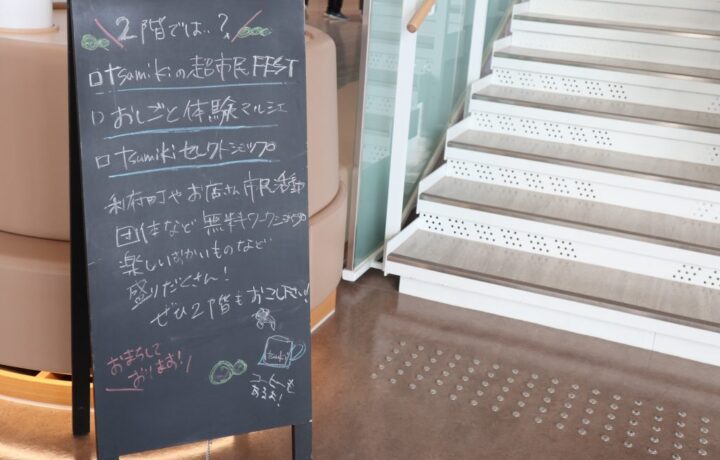 2階では..?
□ tsumikiの超市民FEST
□ おしごと体験マルシェ
□ tsumikiセレクトショップ
利府町やお店さん 市民活動
団体など 無料ワークショップや
楽しいおかいものなど
盛りだくさん!
ぜひ2階もおこし下さい!
おまちして
おります!
tsumiki
コーヒーも
あるよ!